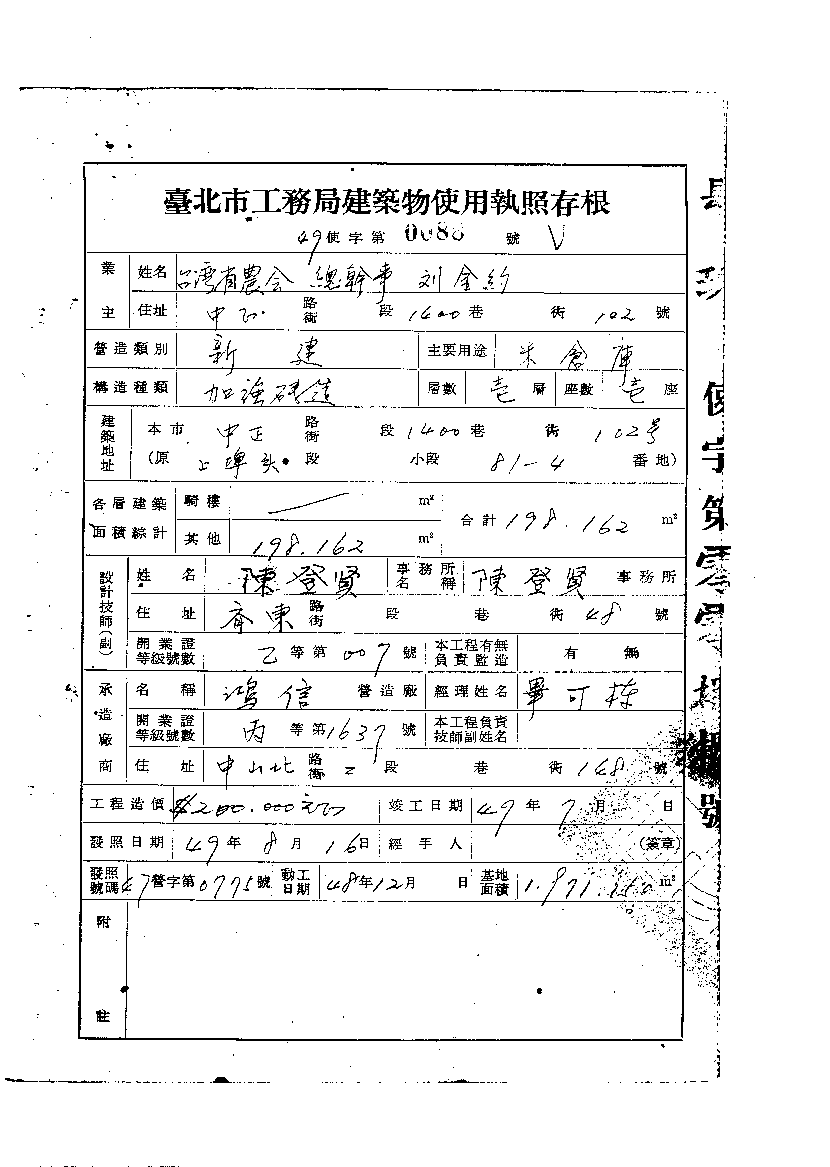 臺北市工務局建築物使用執照存根
49使字第 0088 號 V
業主 姓名 台湾省農会 總幹事 刘金約
住址 中正 路街 段 1400巷 衖 102 號
營造類別 新建 主要用途 米倉庫
構造種類 加強磚造 層數 壱層 座數 壱座
建築地址 本市 中正 路街 段 1400巷 衖 102号
(原 上埤头 段 小段 81-4 番地)
各層建築面積綜計 騎樓 m² 合計 198.162 m²
其他 198.162 m²
設計技師(副) 姓名 陳登賢 事務所名稱 陳登賢 事務所
住址 齐東 路街 段 巷 衖 48 號
開業證等級號數 乙等第 007 號 本工程有無負責監造 有 無
承造廠商 名稱 鴻信 營造廠 經理姓名 畢可栋
開業證等級號數 丙等第 1637 號 本工程負責技師副姓名
住址 中山北 路街 二段 巷 衖 148 號
工程造價 $200.000元 竣工日期 49年 7月 日
發照日期 49年 8月 16日 經手人 (簽章)
發照號碼 47營字第0775號 動工日期 48年12月 日 基地面積 m²
附註
使字第零零 號